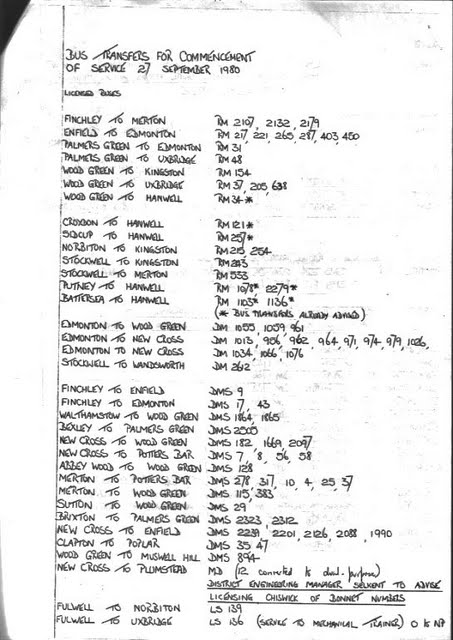 BUS TRANSFERS FOR COMMENCEMENT
OF SERVICE 27 SEPTEMBER 1980
LICENSED BUSES
FINCHLEY TO MERTON RM 2107, 2132, 2179
ENFIELD TO EDMONTON RM 217, 221, 265, 287, 403, 450
PALMERS GREEN TO EDMONTON RM 31
PALMERS GREEN TO UXBRIDGE RM 48
WOOD GREEN TO KINGSTON RM 154
WOOD GREEN TO UXBRIDGE RM 37, 205, 638
WOOD GREEN TO HANWELL RM 34*
CROYDON TO HANWELL RM 121*
SIDCUP TO HANWELL RM 257*
NORBITON TO KINGSTON RM 215, 254
STOCKWELL TO KINGSTON RM
STOCKWELL TO MERTON RM 533
PUTNEY TO HANWELL RM 1078* 2279*
BATTERSEA TO HANWELL RM 1103* 1136*
(* BUS TRANSFERS ALREADY ADVISED)
EDMONTON TO WOOD GREEN DM 1055, 1059 961
EDMONTON TO NEW CROSS DM 1013, 906, 962, 964, 971, 974, 979, 1026,
EDMONTON TO NEW CROSS DM 1034, 1066, 1076
STOCKWELL TO WANDSWORTH DM 262
FINCHLEY TO ENFIELD DMS 9
FINCHLEY TO EDMONTON DMS 17, 43
WALTHAMSTOW TO WOOD GREEN DMS 1864, 1865
BEXLEY TO PALMERS GREEN DMS 2505
NEW CROSS TO WOOD GREEN DMS 182, 1669, 2097
NEW CROSS TO POTTERS BAR DMS 7, 8, 56, 58
ABBEY WOOD TO WOOD GREEN DMS 128
MERTON TO POTTERS BAR DMS 278, 317, 10, 4, 25, 37
MERTON TO WOOD GREEN DMS 115, 383
SUTTON TO WOOD GREEN DMS 29
BRIXTON TO PALMERS GREEN DMS 2323, 2312
NEW CROSS TO ENFIELD DMS 2239, 2201, 2126, 2088, 1990
CLAPTON TO POPLAR DMS 35 47
WOOD GREEN TO MUSWELL HILL DMS 894
NEW CROSS TO PLUMSTEAD MD (12 converted to dual-purpose)
DISTRICT ENGINEERING MANAGER SELKENT TO ADVISE
LICENSING CHISWICK OF BONNET NUMBERS
FULWELL TO NORBITON LS 139
FULWELL TO UXBRIDGE LS 136 (SERVICE TO MECHANICAL TRAINER)